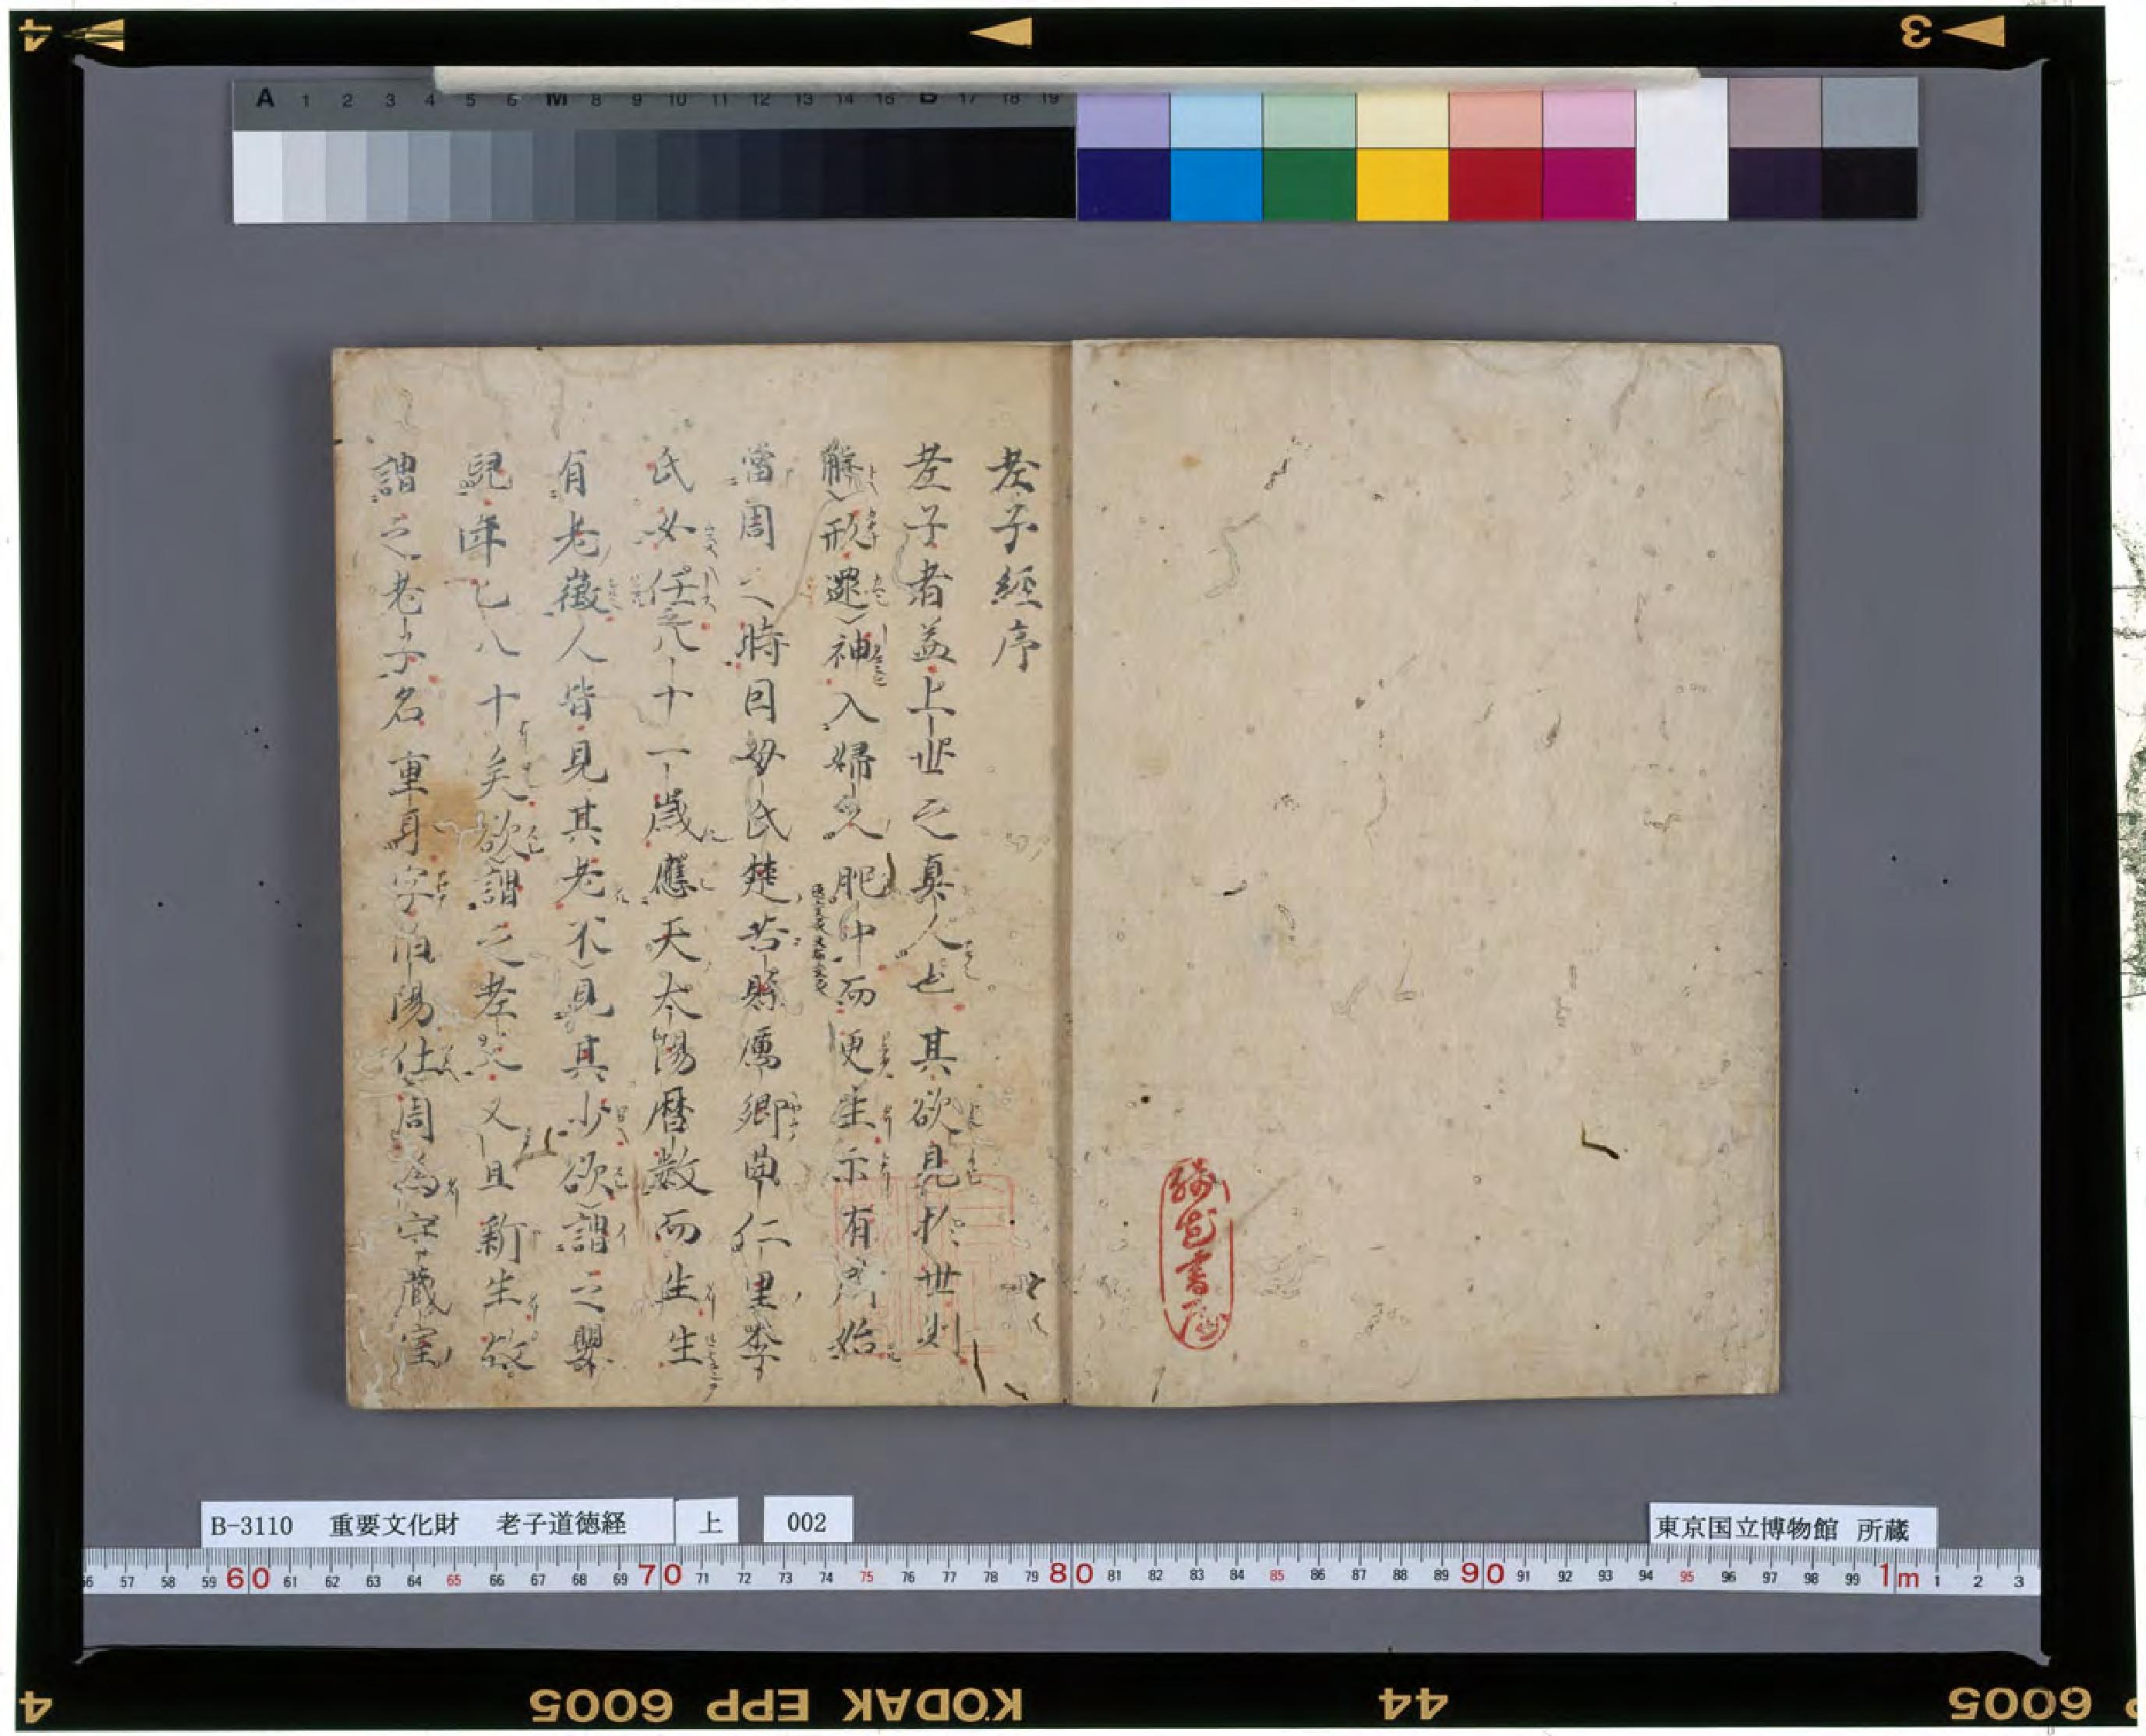 老子經序
老子者盖上世之真人也其欲見於世則
解形還神入婦人胞中而更生示有所始
當周之時因母氏楚苦縣厲鄉曲仁里李
氏女任之八十一歳應天太陽暦數而生生
有老徴人皆見其老不見其少欲謂之嬰
兒年已八十矣欲謂之老父又且新生故
謂之老子名重耳字伯陽仕周為守蔵室
A 1 2 3 4 5 6 M 8 9 10 11 12 13 14 15 B 17 18 19
B-3110 重要文化財 老子道徳経 上 002
東京国立博物館 所蔵
56 57 58 59 60 61 62 63 64 65 66 67 68 69 70 71 72 73 74 75 76 77 78 79 80 81 82 83 84 85 86 87 88 89 90 91 92 93 94 95 96 97 98 99 1m 1 2 3
4 3
4 KODAK EPP 6005 44 6005